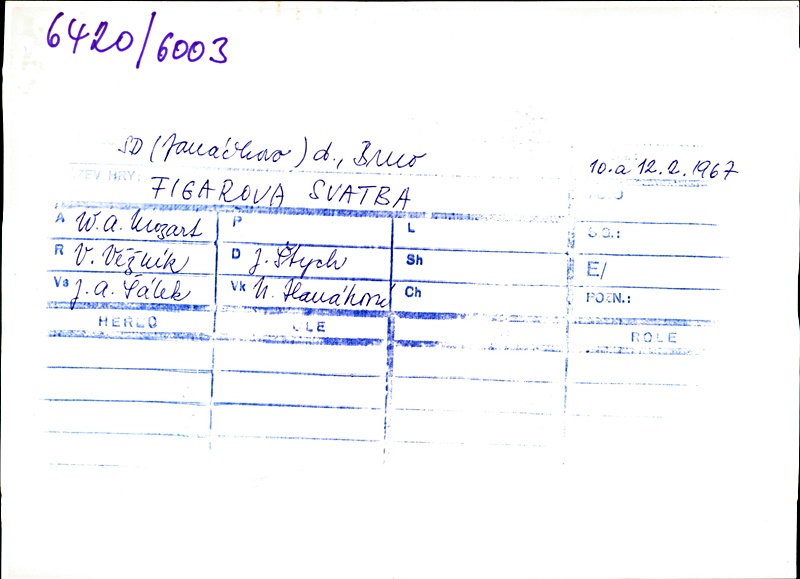 6420/6003
SD (Janáčkovo) d., Brno
10. a 12. 2. 1967
ZEV HRY: FIGAROVA SVATBA
A W. A. Mozart P L
S.G.:
R V. Věžník D J. Štych Sh
E/
Vs J. A. Šálek Vk N. Hanáková Ch
POZN.:
HEREC LE ROLE